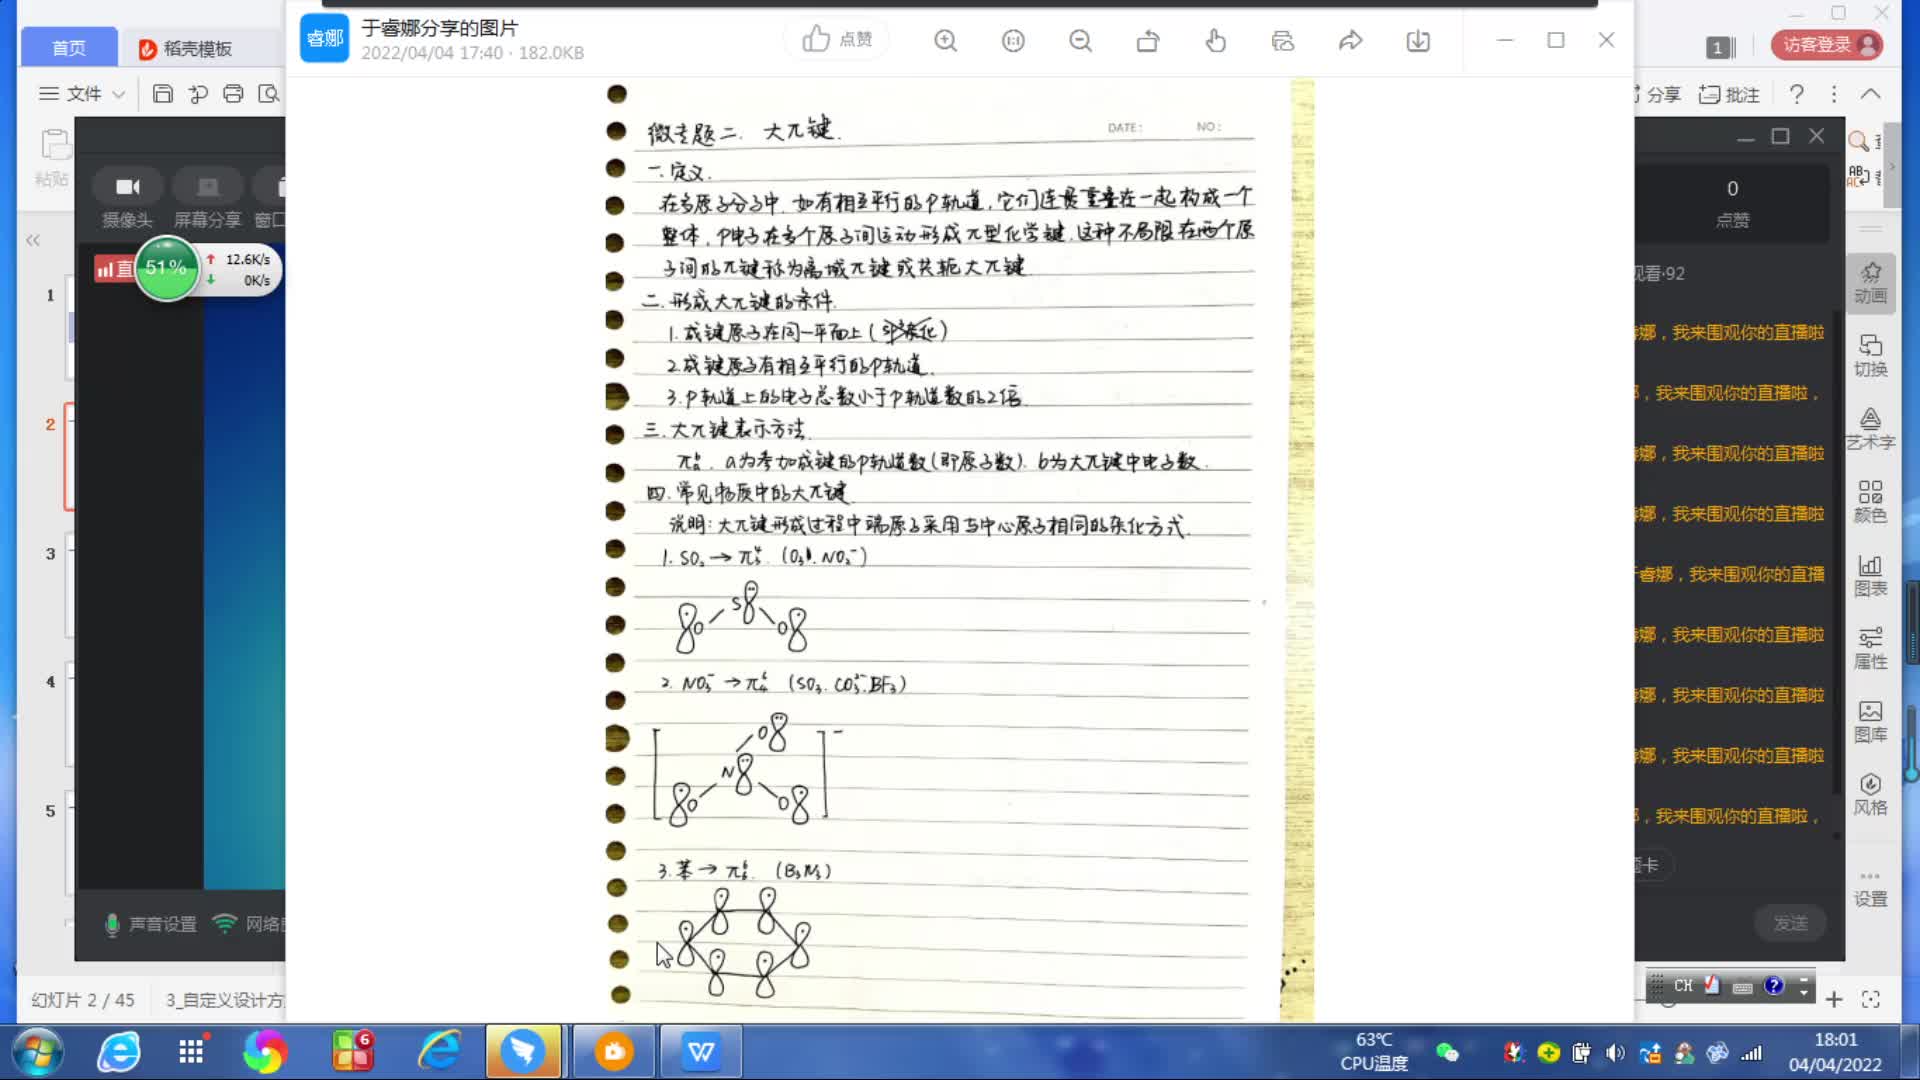 首页
稻壳模板
文件
粘贴
摄像头
屏幕分享
窗口
51%
12.6K/s
0K/s
1
2
3
4
5
声音设置
网络
幻灯片 2 / 45
3_自定义设计方
睿娜
于睿娜分享的图片
2022/04/04 17:40 · 182.0KB
点赞
微专题二. 大π键.
DATE:
NO:
一.定义.
在多原子分子中.如有相互平行的P轨道,它们连贯重叠在一起构成一个
整体,P电子在多个原子间运动形成π型化学键.这种不局限在两个原
子间的π键称为离域π键或共轭大π键.
二.形成大π键的条件.
1.成键原子在同一平面上(杂化)
2.成键原子有相互平行的P轨道.
3.P轨道上的电子总数小于P轨道数的2倍.
三.大π键表示方法.
πₐᵇ. a为参加成键的P轨道数(即原子数). b为大π键中电子数.
四.常见物质中的大π键.
说明:大π键形成过程中端原子采用与中心原子相同的杂化方式.
1. SO₂ → π₃⁴. (O₃. NO₂⁻)
S
O
O
2. NO₃⁻ → π₄⁶ (SO₃. CO₃²⁻. BF₃)
O
N
O
O
3.苯 → π₆⁶. (B₃N₃)
1
访客登录
分享
批注
0
点赞
观看·92
娜,我来围观你的直播啦
,我来围观你的直播啦,
娜,我来围观你的直播啦
娜,我来围观你的直播啦
睿娜,我来围观你的直播
娜,我来围观你的直播啦
娜,我来围观你的直播啦
娜,我来围观你的直播啦
,我来围观你的直播啦,
卡
发送
动画
切换
艺术字
颜色
图表
属性
图库
风格
设置
CH
6
63℃
CPU温度
18:01
04/04/2022